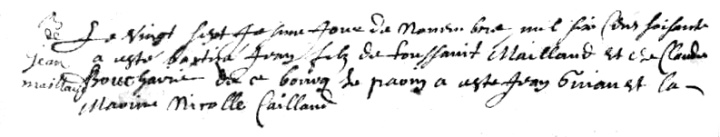 B de Jean Maillaud
Le vingt sept Jesme Jour de Novembre mil six cens soisante
a esté baptisé Jean filz de toussainct Maillaud et de Claude
de ce bourcq le parin a esté Jean et la
Marine Nicolle Caillaud